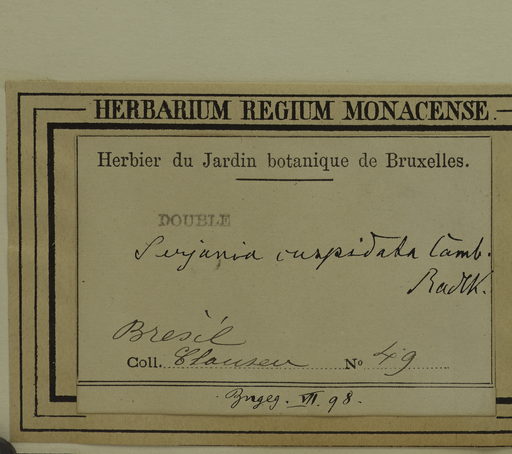 HERBARIUM REGIUM MONACENSE.
Herbier du Jardin botanique de Bruxelles.
DOUBLE
Serjania cuspidata Camb.
Radlk.
Brésil
Coll. Clausen No 49
VII. 98.